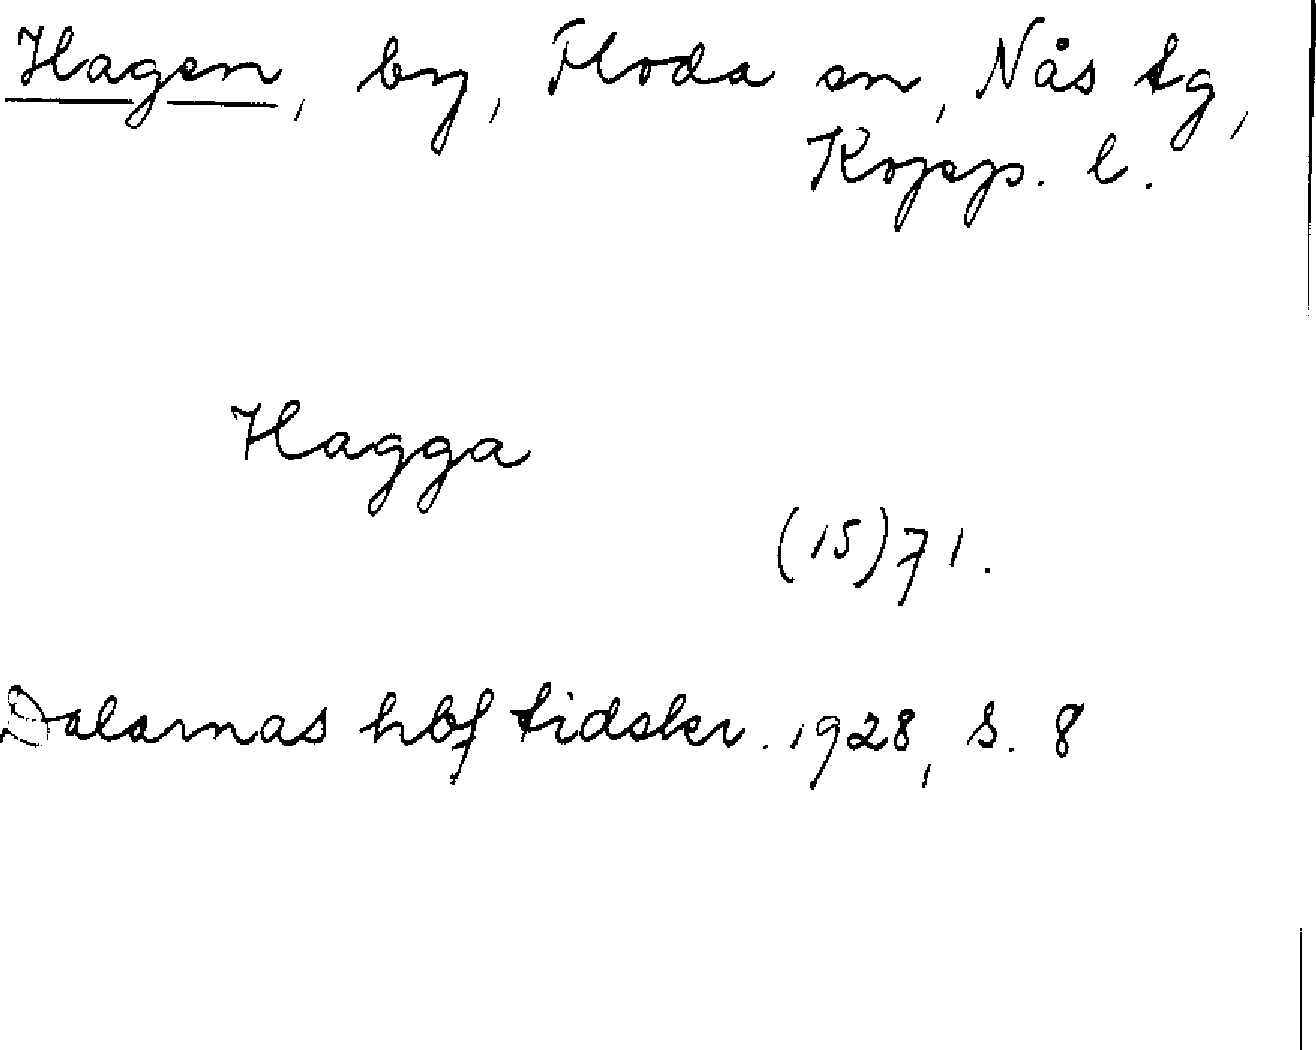 Hagen, by, Floda sn, Nås tg,
Kopp. l.
Hagga
(15)71.
Dalarnas hbf tidskr. 1928, S. 8